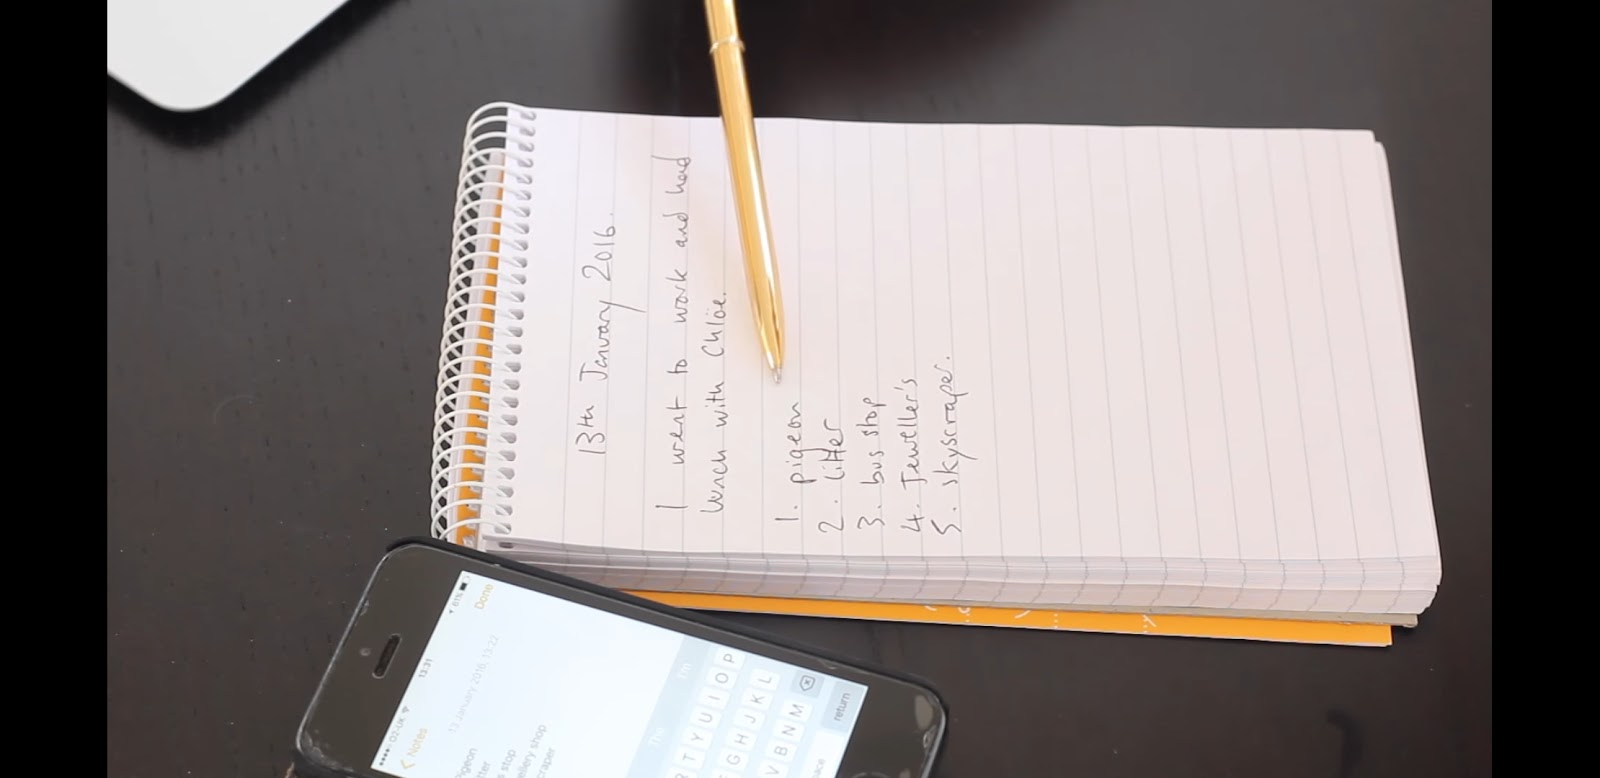 13th January 2016.
I went to work and had
lunch with Chlöe.
1. pigeon
2. litter
3. bus stop
4. Jeweller's
5. skyscraper.
O2-UK 13:31 81%
Notes Done
13 January 2016, 13:22
stop
shop
The I'm
T Y U I O P
G H J K L
V B N M
return